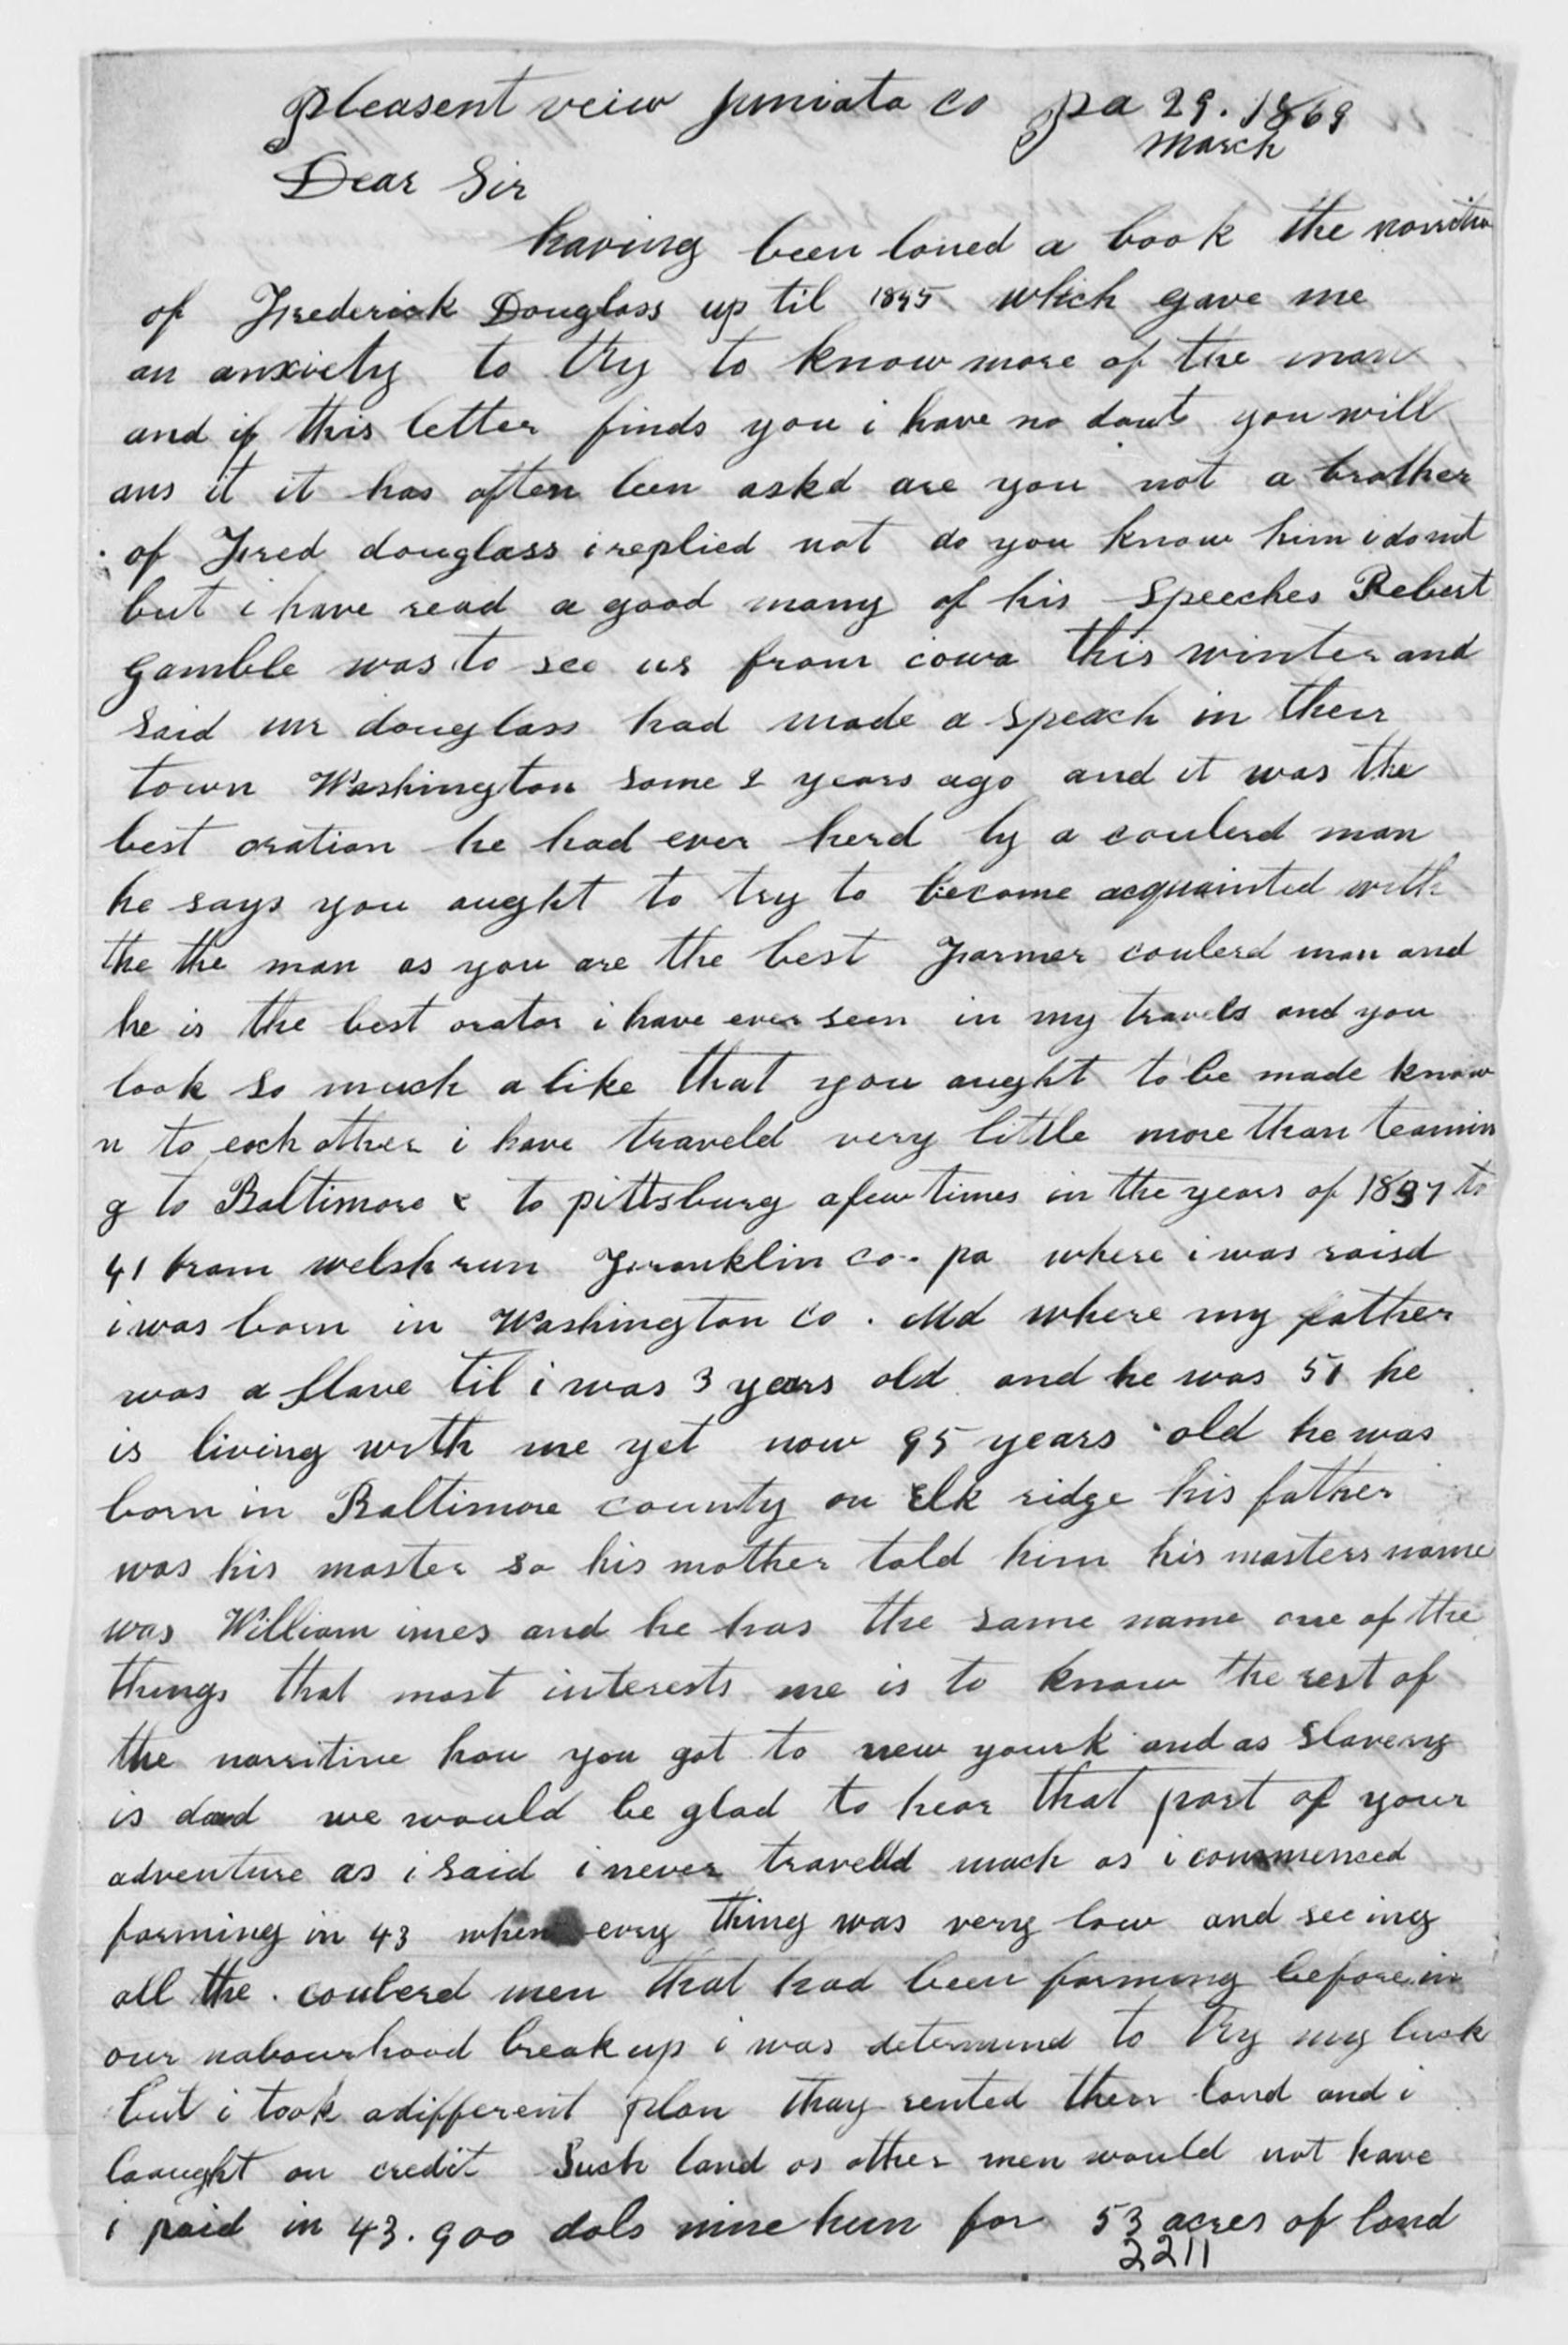 pleasent veiw juniata co pa 29. 1869
march
Dear Sir
having been loned a book the
of Frederick Douglass up til 1845 which gave me
an anxiety to try to know more of the man
and if this letter finds you i have no dout you will
ans it it has often been askd are you not a brother
of Fred douglass i replied not do you know him i do not
but i have read a good many of his Speeches Rebert
Gamble was to see us from iowa this winter and
said mr douglass had made a speach in their
town Washington some 2 years ago and it was the
best oration he had ever herd by a coulerd man
he says you aught to try to become acquainted with
the the man as you are the best Farmer coulerd man and
he is the best orator i have ever seen in my travels and you
look so much alike that you aught to be made know
n to each other i have traveld very little more than teamin
g to Baltimore & to pittsburg a few times in the years of 1837 to
41 from welsh run Franklin co. pa where i was raisd
i was born in Washington co. Md where my father
was a slave til i was 3 years old and he was 51 he
is living with me yet now 95 years old he was
born in Baltimore county on Elk ridge his father
was his master so his mother told him his masters name
was William imes and he has the same name one of the
things that most interests me is to know the rest of
the narritive how you got to new yourk and as slavery
is dead we would be glad to hear that part of your
adventure as i said i never travelld much as i commenced
farming in 43 when evry thing was very low and seeing
all the coulerd men that had been farming before in
our nabourhood break up i was determind to try my luck
but i took a different plan thay rented their land and i
baught on credit Such land as other men would not have
i paid in 43. 900 dols nine hun for 53 acres of land
2211